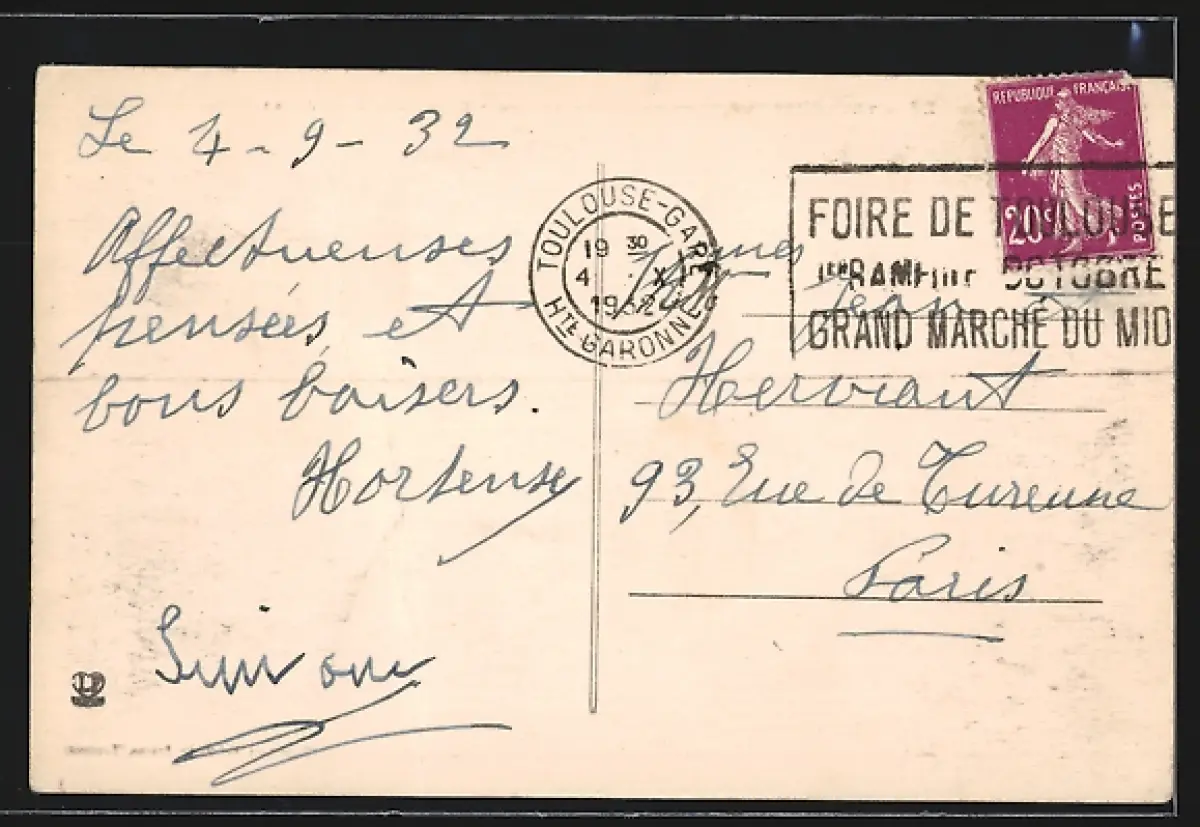 Le 4-9-32
Affectueuses
pensées, et
bons baisers.
Hortense
Simone
REPUBLIQUE FRANÇAISE
20c
POSTES
TOULOUSE-GARE
19 30
4 · IX
1932
HTE-GARONNE
FOIRE DE TOULOUSE
OCTOBRE
GRAND MARCHÉ DU MIDI
Jean
Herviant
93, Rue de Turenne
Paris